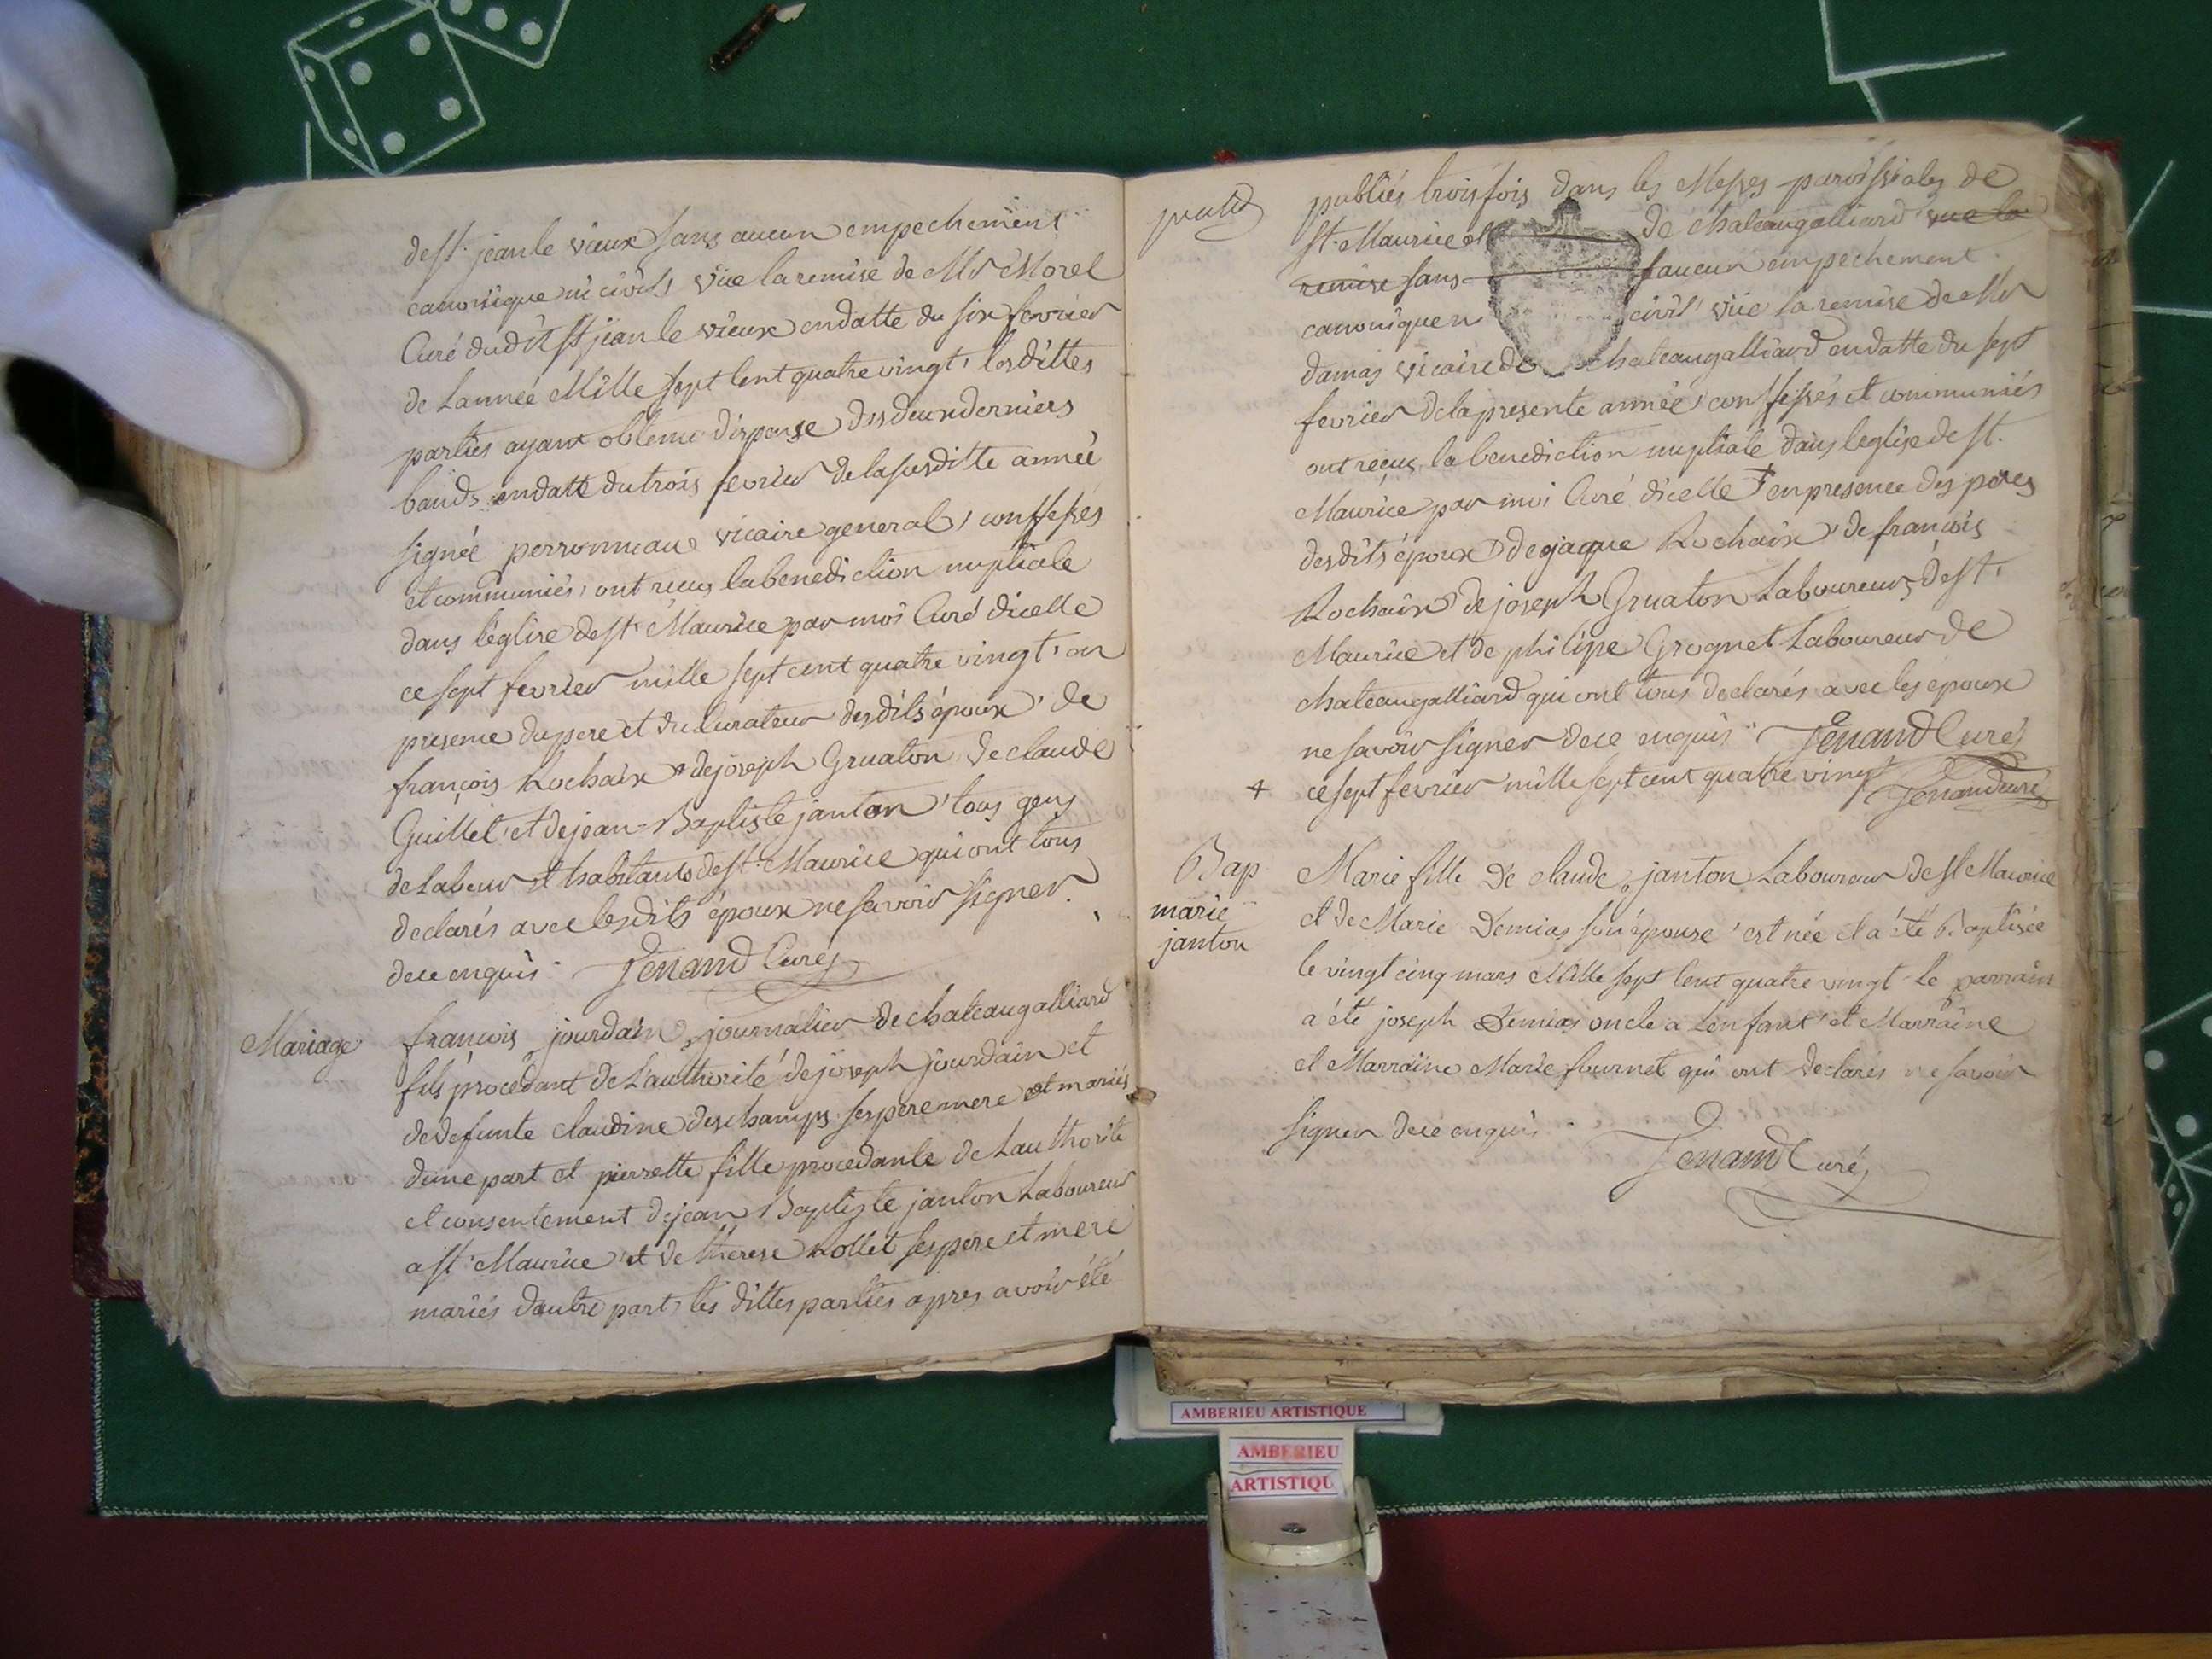 de st. jean le vieux sans aucun empechement
canonique ni civils vüe la remise de Mr Morel
Curé dudit st jean le vieux en datte du six fevrier
de Lannée Mille sept Cent quatre vingt, lesdittes
parties ayant obtenu dispense des deux derniers
bands en datte du trois fevrier de la susditte année
signée perronneau vicaire general, confessés
et communiés, ont reçus la benediction nuptiale
dans l'église de st. Maurice par moi Curé dicelle
ce sept fevrier mille sept cent quatre vingt, en
presence du pere et du Curateur desdits époux, de
françois Rochaix de joseph Gruaton de claude
Guillet et de jean-Baptiste janton, tous gens
de Labeur et habitants de st. Maurice qui ont tous
declarés avec lesdits époux ne savoir signer.
de ce enquis. Jenand Curé
Mariage
françois jourdain journalier de chateaugalliard
fils procedant de L'authorité de joseph jourdain et
de defunte claudine deschamps ses pere mere et mariés
d'une part et pierrette fille procedante de Lauthorité
et consentement de jean Baptiste janton Laboureur
a st. Maurice et de therese Rollet ses pere et mere
mariés dautre part, les dittes parties apres avoir été
publiés trois fois dans les Messes paroissiales de
st. Maurice et de chateaugalliard vue la
remise sans aucun empechement
canonique ni civil vüe la remise de Mr
damas vicaire de chateaugalliard en datte du sept
fevrier de la presente année, confessés et communiés
ont reçus la benediction nuptiale dans leglise de st.
Maurice par moi Curé dicelle + en presence des peres
desdits époux, de jaque Rochaix, de françois
Rochaix, de joseph Gruaton Laboureurs de st.
Maurice et de philipe Grognet Laboureur de
chateaugalliard qui ont tous declarés avec les époux
ne savoir signer de ce enquis Jenand Curé
+ ce sept fevrier mille sept cent quatre vingt Jenand curé
Bap
marie
janton
Marie fille De claude janton Laboureur de st Maurice
et de Marie Demias son épouse, est née et a été Baptisée
le vingt cinq mars Mille sept Cent quatre vingt Le parrain
a été joseph Demias oncle a Lenfant et Marraine
et Marraine Marie fournet qui ont declarés ne savoir
signer de ce enquis.
Jenand Curé
AMBERIEU ARTISTIQUE
AMBERIEU
ARTISTIQU